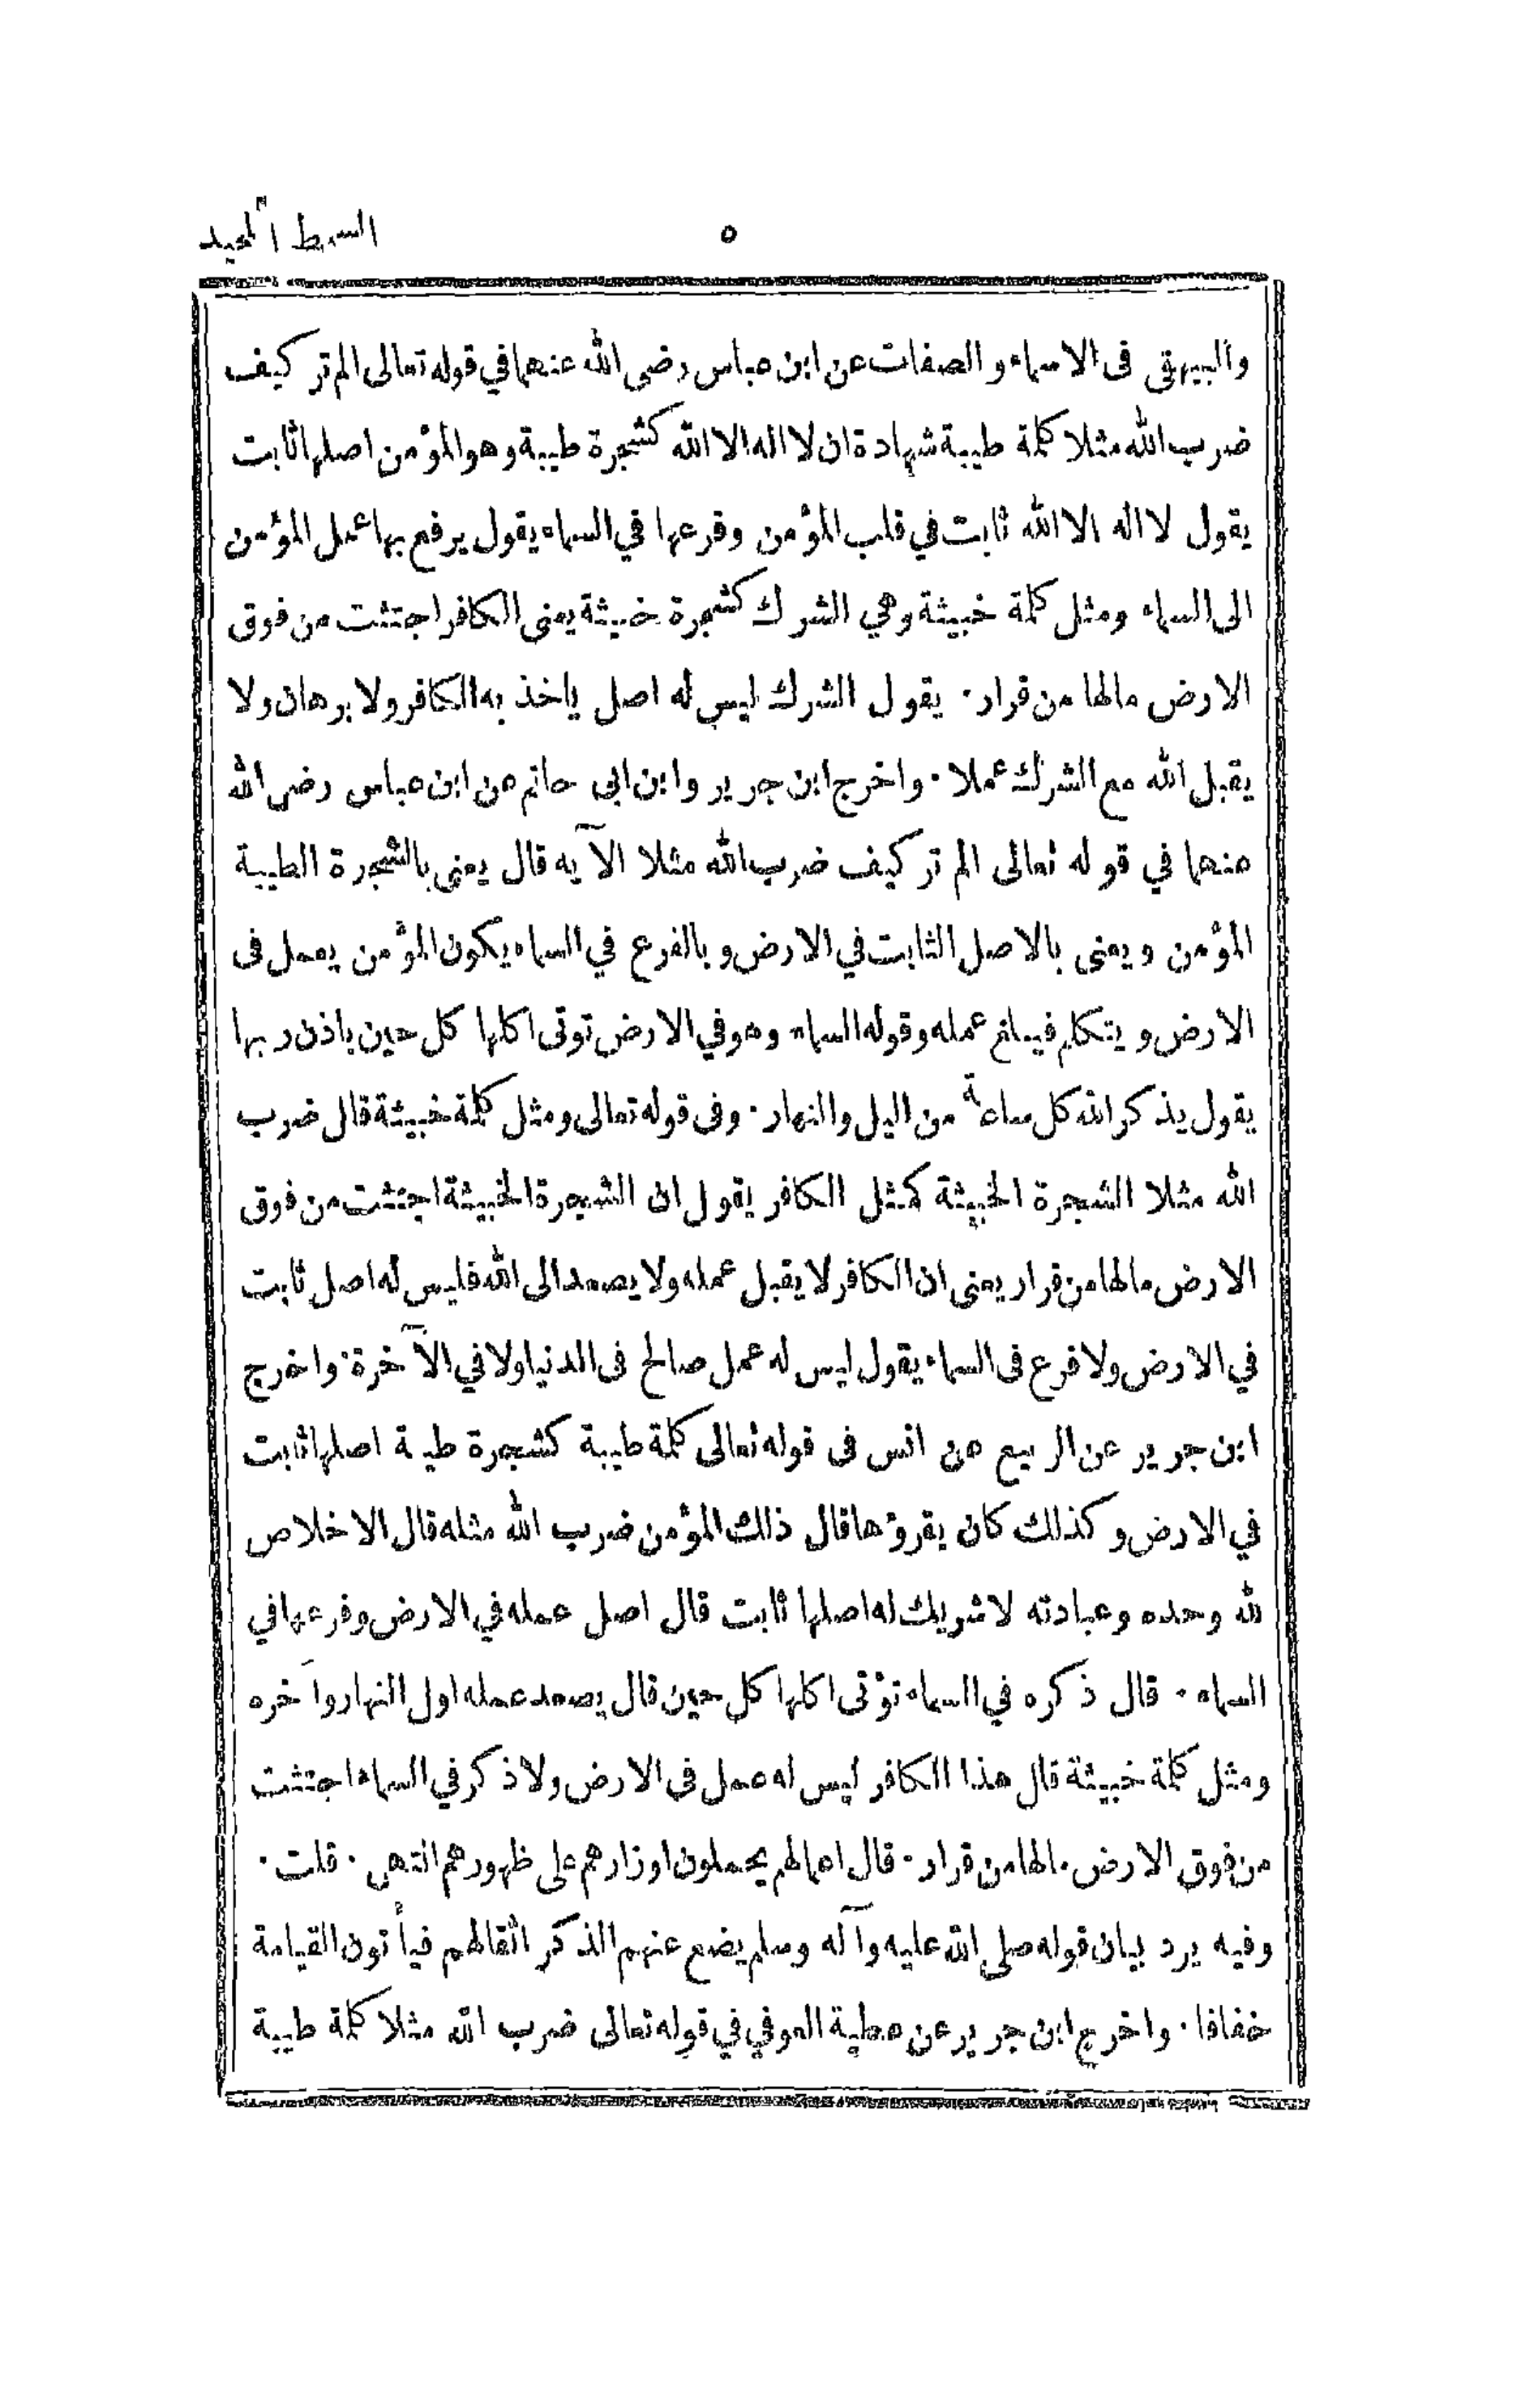 السمط المجيد
٥
والبيهقى فى الاسماء و الصفات عن ابن عباس رضى الله عنهما في قوله تعالى الم تر كيف
ضرب الله مثلا كلمة طيبة شهادة ان لا اله الا الله كشجرة طيبة وهو المؤمن اصلها ثابت
يقول لا اله الا الله ثابت في قلب المؤمن وفرعها في السماء يقول يرفع بها عمل المؤمن
الى السماء ومثل كلمة خبيثة وهي الشرك كشجرة خبيثة يعنى الكافر اجتثت من فوق
الارض مالها من قرار · يقول الشرك ليس له اصل ياخذ به الكافر ولا برهان ولا
يقبل الله مع الشرك عملا · واخرج ابن جرير وابن ابى حاتم عن ابن عباس رضى الله
عنهما في قوله تعالى الم تر كيف ضرب الله مثلا الآيه قال يعنى بالشجرة الطيبة
المؤمن ويعنى بالاصل الثابت في الارض وبالفرع في السماء يكون المؤمن يعمل فى
الارض و يتكلم فيبلغ عمله وقوله السماء وهو في الارض توتى اكلها كل حين باذن ربها
يقول يذكر الله كل ساعة من اليل والنهار · وفى قوله تعالى ومثل كلمة خبيثة قال ضرب
الله مثلا الشجرة الخبيثة كمثل الكافر يقول ان الشجرة الخبيثة اجتثت من فوق
الارض مالها من قرار يعنى ان الكافر لا يقبل عمله ولا يصعد الى الله فليس له اصل ثابت
في الارض ولا فرع فى السماء يقول ليس له عمل صالح فى الدنيا ولا في الآخرة · واخرج
ابن جرير عن الربيع عن انس فى قوله تعالى كلمة طيبة كشجرة طيبة اصلها ثابت
في الارض و كذلك كان يقرؤها قال ذلك المؤمن ضرب الله مثله قال الاخلاص
لله وحده وعبادته لا شريك له اصلها ثابت قال اصل عمله في الارض وفرعها في
السماء · قال ذكره في السماء تؤتى اكلها كل حين قال يصعد عمله اول النهار وآخره
ومثل كلمة خبيثة قال هذا الكافر ليس له عمل فى الارض ولا ذكر في السماء اجتثت
من فوق الارض مالها من قرار · قال اعمالهم يحملون اوزارهم على ظهورهم انتهى · قلت ·
وفيه يرد بيان قوله صلى الله عليه وآله وسلم يضع عنهم الذكر اثقالهم فيأتون القيامة
خفافا · واخرج ابن جرير عن عطية العوفي في قوله تعالى ضرب الله مثلا كلمة طيبة